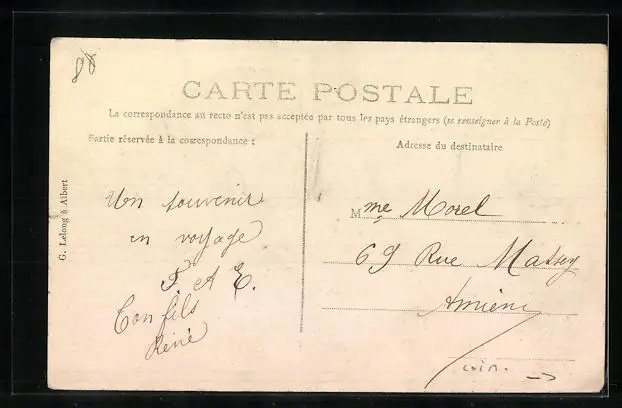 80
CARTE POSTALE
La correspondance au recto n'est pas acceptée par tous les pays étrangers (se renseigner à la Poste)
Partie réservée à la correspondance :
Adresse du destinataire
G. Lelong à Albert
Un souvenir
en voyage
P. A E.
Ton fils
René
Mme Morel
69 Rue Massey
Amiens
coin. →